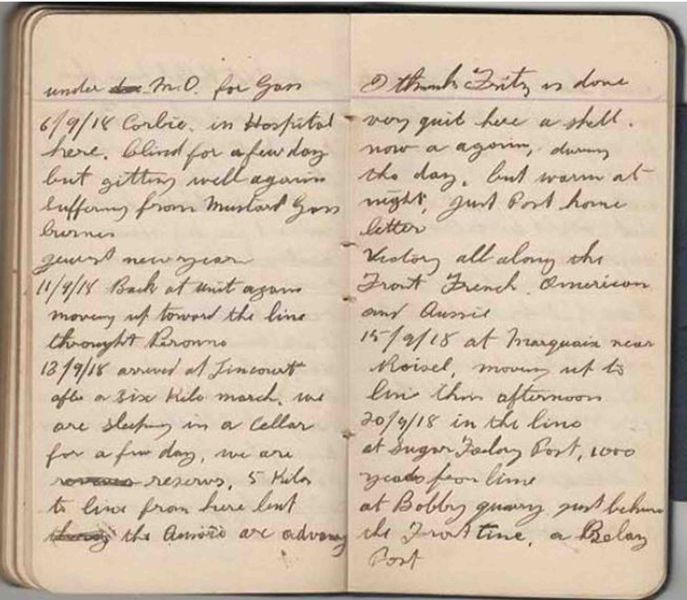 under M.O. for Gass
6/9/18 Corbie. in Hospital
here. blind for a few day
but gitting well again
suffering from Mustard Gass
burnes
jewist new year
11/9/18 Back at unit again
moving up toward the line
throught Peronne
13/9/18 arrived at Tincourt
after a six Kilo march. we
are sleeping in a cellar
for a few day, we are
reserve, 5 Kilos
to line from here but
the Aussie are advancing
I thank Fritz is done
very quit here a shell.
now a again, during
the day. but warm at
night, just Post home
letter
Victory all along the
Front French. American
and Aussie
15/9/18 at Marquaix near
Roisel, moving up to
line this afternoon
20/9/18 in the line
at Sugar Factory Post, 1000
yeads from line
at Bobby quarry just behind
the Front line, a Relay
Post